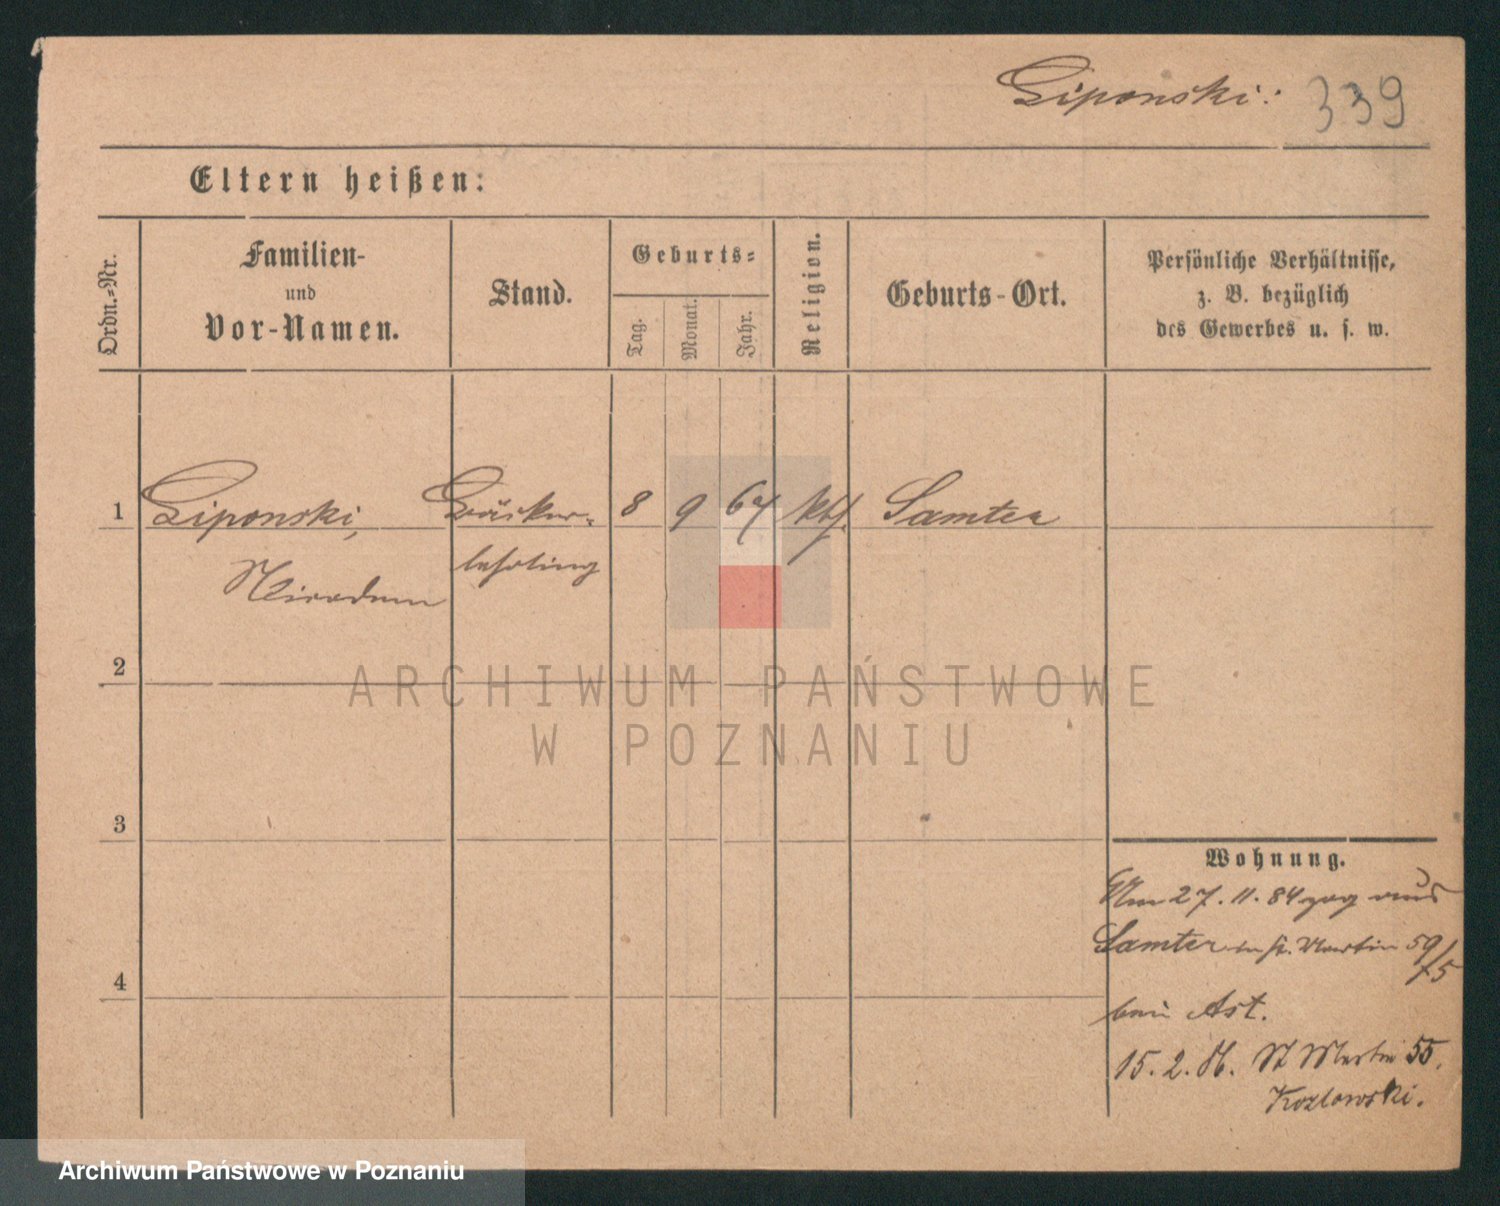 Liponski: 339
Eltern heißen:
Ordn.-Nr.
Familien-
und
Vor-Namen.
Stand.
Geburts-
Tag.
Monat.
Jahr.
Religion.
Geburts-Ort.
Persönliche Verhältnisse,
z. B. bezüglich
des Gewerbes u. s. w.
1 Liponski, 8 9 67 kth. Samter
lehrling
2
ARCHIWUM PAŃSTWOWE
W POZNANIU
3
4
Wohnung.
Am 27. 11. 84 zog aus
Samter in St. Martin 59/75
bei Ast.
15. 2. 86. St Martin 55.
Kozlowski.
Archiwum Państwowe w Poznaniu